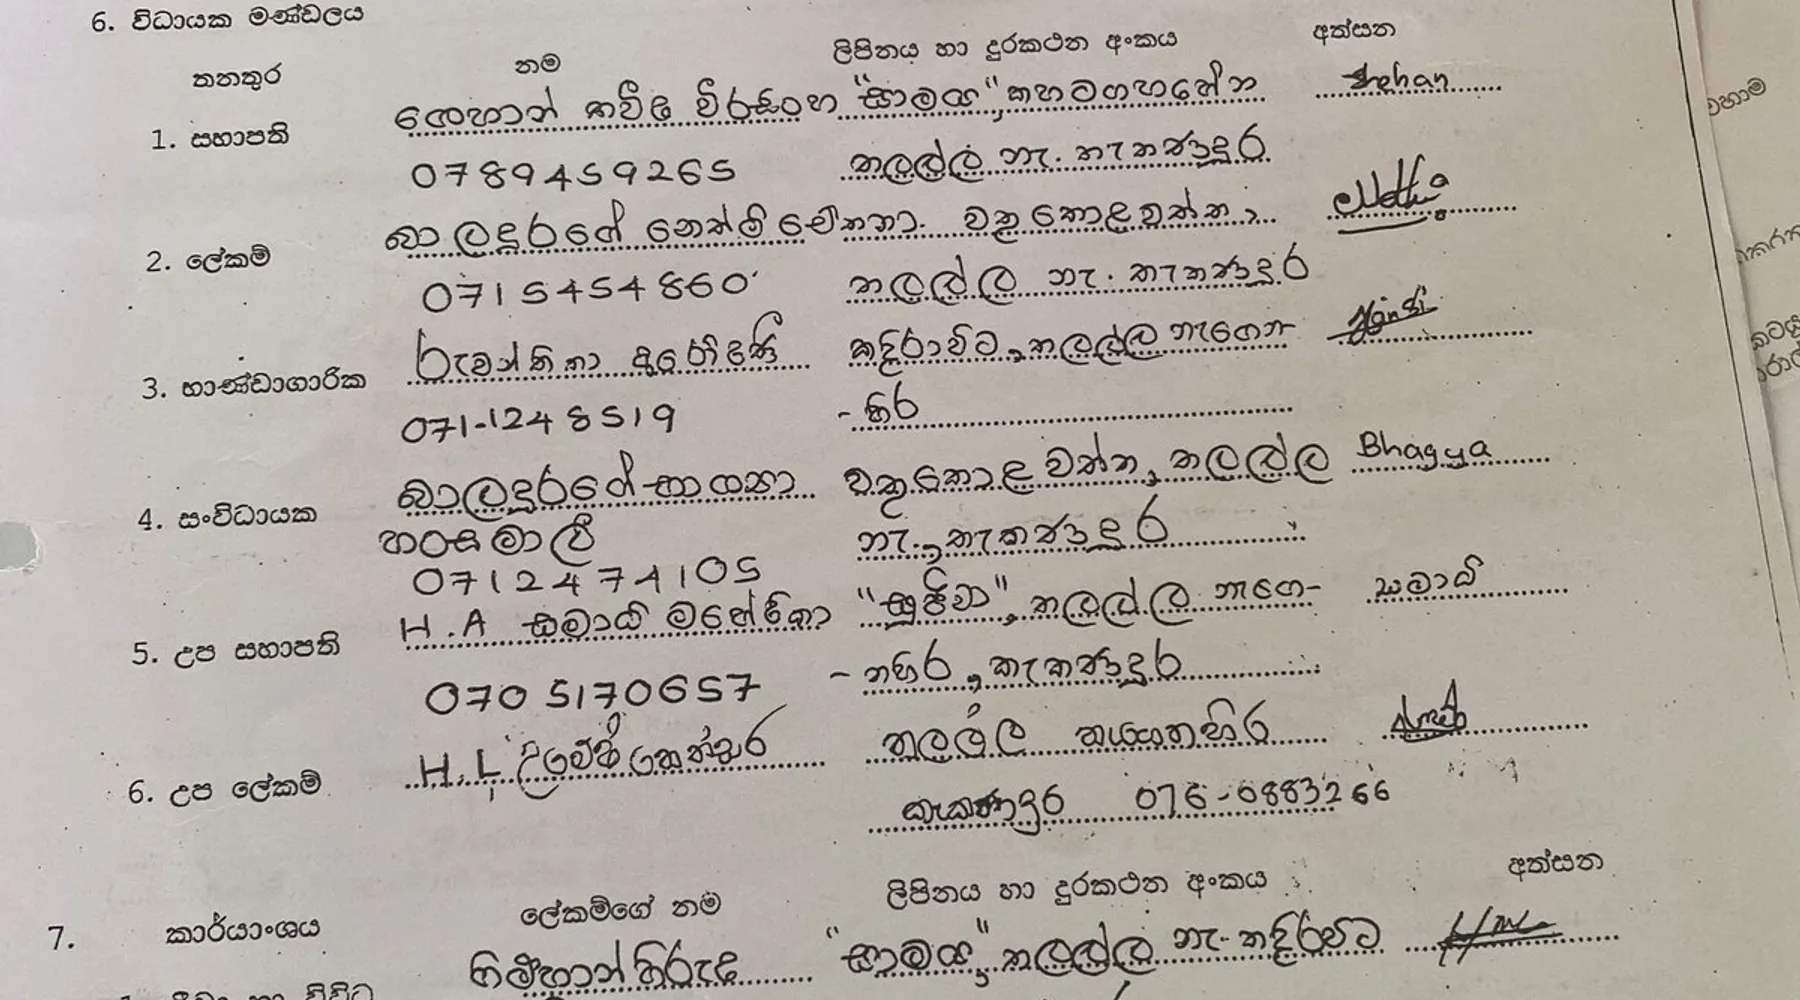 6. විධායක මණ්ඩලය
තනතුර නම ලිපිනය හා දුරකථන අංකය අත්සන
1. සහාපති ශෙහාන් කවීෂ වීරසිංහ "සාමය", කහටගහහේන Shehan
0789459265 තලල්ල නැ. කැකණදුර
2. ලේකම් බාලදූරගේ නෙත්මි චේතනා. වකුකොළවත්ත,
0715454860 තලල්ල නැ. කැකණදුර
3. භාණ්ඩාගාරික රුවන්තිකා කදිරාවිට, තලල්ල නැගෙන
071-1248519 - හිර
4. සංවිධායක බාලදූරගේ භාග්‍යා වකුකොළවත්ත, තලල්ල Bhagya
හංසමාලී නැ., කැකණදුර
0712474105
5. උප සහාපති H.A සමාධි මහේෂිකා "සුජීවා", තලල්ල නැගෙ- සමාධි
0705170657 - නහිර, කැකණදුර
6. උප ලේකම් H.L තලල්ල නැගෙනහිර
කැකණදුර 076-0883266
7. කාර්යාංශය ලේකම්ගේ නම ලිපිනය හා දුරකථන අංකය අත්සන
"සාමය", තලල්ල නැ- කදිරාවිට